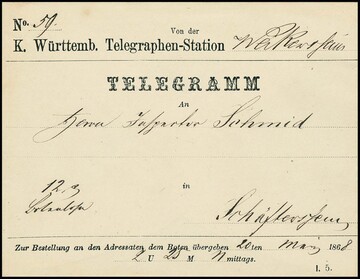 No. 59.
Von der
K. Württemb. Telegraphen-Station Weikersheim
TELEGRAMM
An
Herrn Inspector Schmid
12 x
Botenlohn
in
Schäftersheim
Zur Bestellung an den Adressaten dem Boten übergeben 20ten Mai 1868
2 U 25 M N mittags.
I. 5.